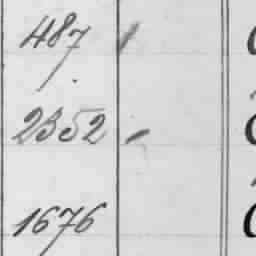 487
2352
1676